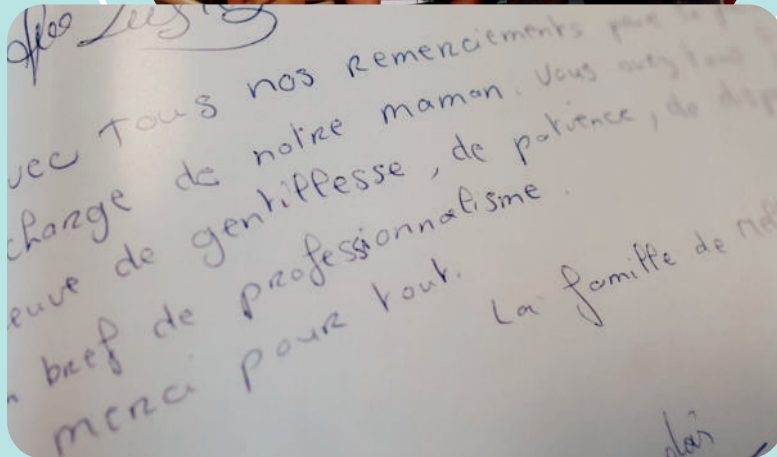 vec tous nos remerciements pour la p
charge de notre maman. Vous avez tous
euve de gentillesse, de patience, de disp
n bref de professionnalisme.
merci pour tout.
La famille de